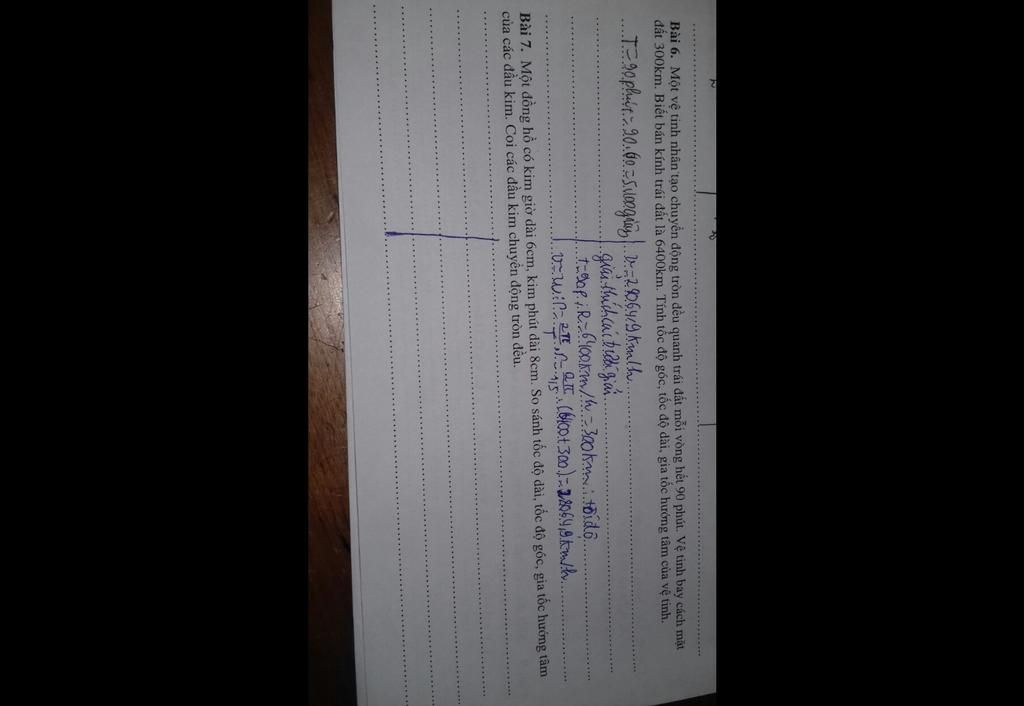 Bài 6. Một vệ tinh nhân tạo chuyển động tròn đều quanh trái đất mỗi vòng hết 90 phút. Vệ tinh bay cách mặt
đất 300km. Biết bán kính trái đất là 6400km. Tính tốc độ góc, tốc độ dài, gia tốc hướng tâm của vệ tinh.
T = 90 phút = 90.60 = 5400 giây
v = 28064,9 km/h
giải thích bài giải
t = 90p; R = 6400km/h = 300km; tốc độ
v = w.r = 2π/T . r = 2π/1,5 . (6400+300) = 28064,9 km/h
Bài 7. Một đồng hồ có kim giờ dài 6cm, kim phút dài 8cm. So sánh tốc độ dài, tốc độ góc, gia tốc hướng tâm
của các đầu kim. Coi các đầu kim chuyển động tròn đều.